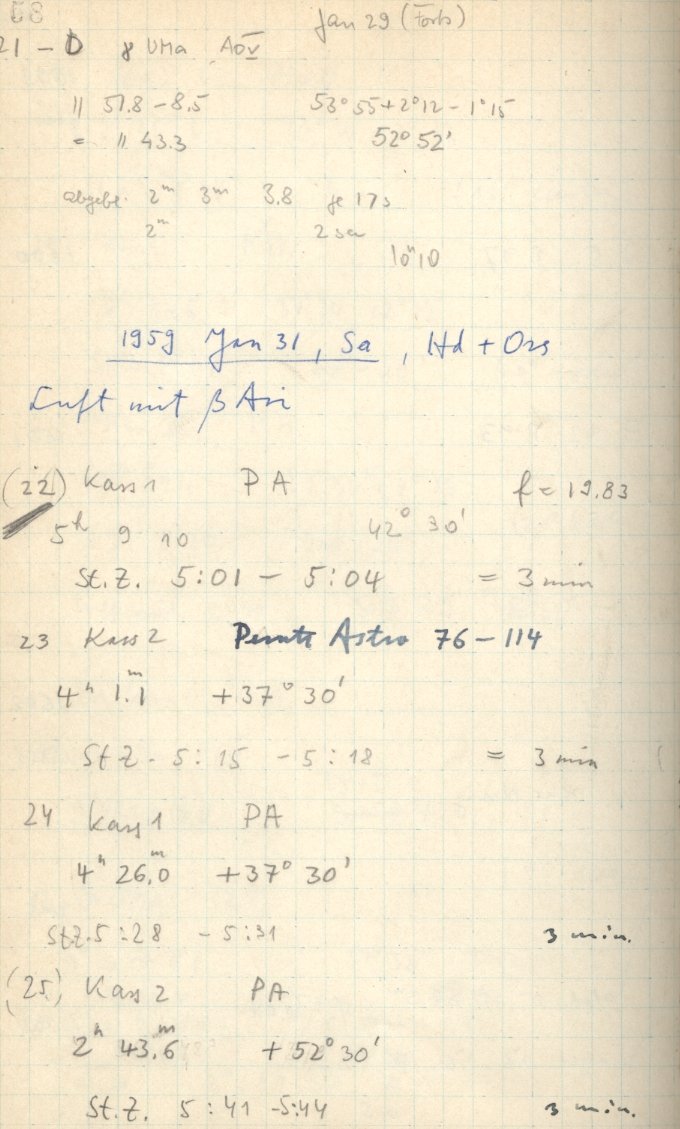 Jan 29 (Forts)
21 - D γ UMa A0V
11 51.8 - 8.5 53° 55 + 2° 12 - 1° 15
= 11 43.3 52° 52'
abgebl. 2ᵐ 3ᵐ 3.8 je 17s
2ᵐ
10ʰ10
1959 Jan 31, Sa, Hd + Ors
Luft mit β Ari
(22) Kass 1 PA f = 19.83
5ʰ 9 10 42° 30'
St.Z. 5:01 - 5:04 = 3 min
23 Kass 2 Perutz Astro 76-114
4ʰ 1.1ᵐ +37° 30'
StZ. 5:15 - 5:18 = 3 min
24 Kass 1 PA
4ʰ 26.0ᵐ +37° 30'
StZ. 5:28 - 5:31 3 min.
(25) Kass 2 PA
2ʰ 43.6ᵐ +52° 30'
St.Z. 5:41 - 5:44 3 min.